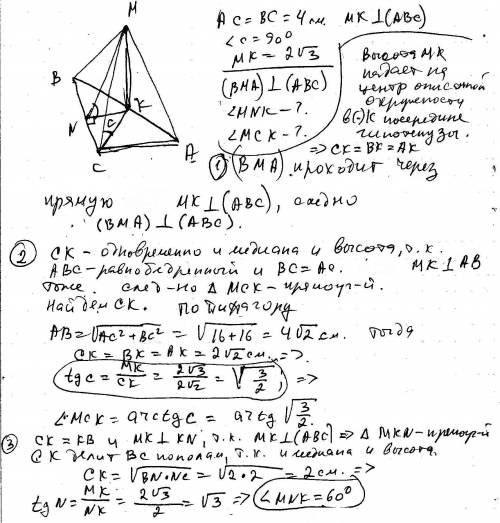 M
B
N
K
C
C
A
AC = BC = 4 см. MK ⊥ (ABC)
∠C = 90°
MK = 2√3
(BMA) ⊥ (ABC)
∠MNK - ?
∠MCK - ?
Высота MK
падает на
центр описаной
окружности
в (·) K посередине
гипотенузы.
=> CK = BK = AK
① (BMA) проходит через
прямую MK ⊥ (ABC), следно
(BMA) ⊥ (ABC).
② CK - одновременно и медиана и высота, т.к.
ABC - равнобедренный и BC = AC. MK ⊥ AB
тоже. след-но △ MCK - прямоуг-й.
Найдем CK. По Пифагору
AB = √AC² + BC² = √16 + 16 = 4√2 см. тогда
CK = BK = AK = 2√2 см. =>
tg C = MK/CK = 2√3/2√2 = √3/2, =>
∠MCK = arctg C = arctg √3/2.
③ CK = KB и MK ⊥ KN, т.к. MK ⊥ (ABC) => △ MKN - прямоуг-й
CK делит BC пополам, т.к. и медиана и высота.
CK = √BN • NC = √2 • 2 = 2 см. =>
tg N = MK/NK = 2√3/2 = √3 => ∠MNK = 60°